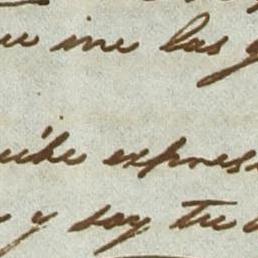 ue me las g
cibe expres
y soy tu